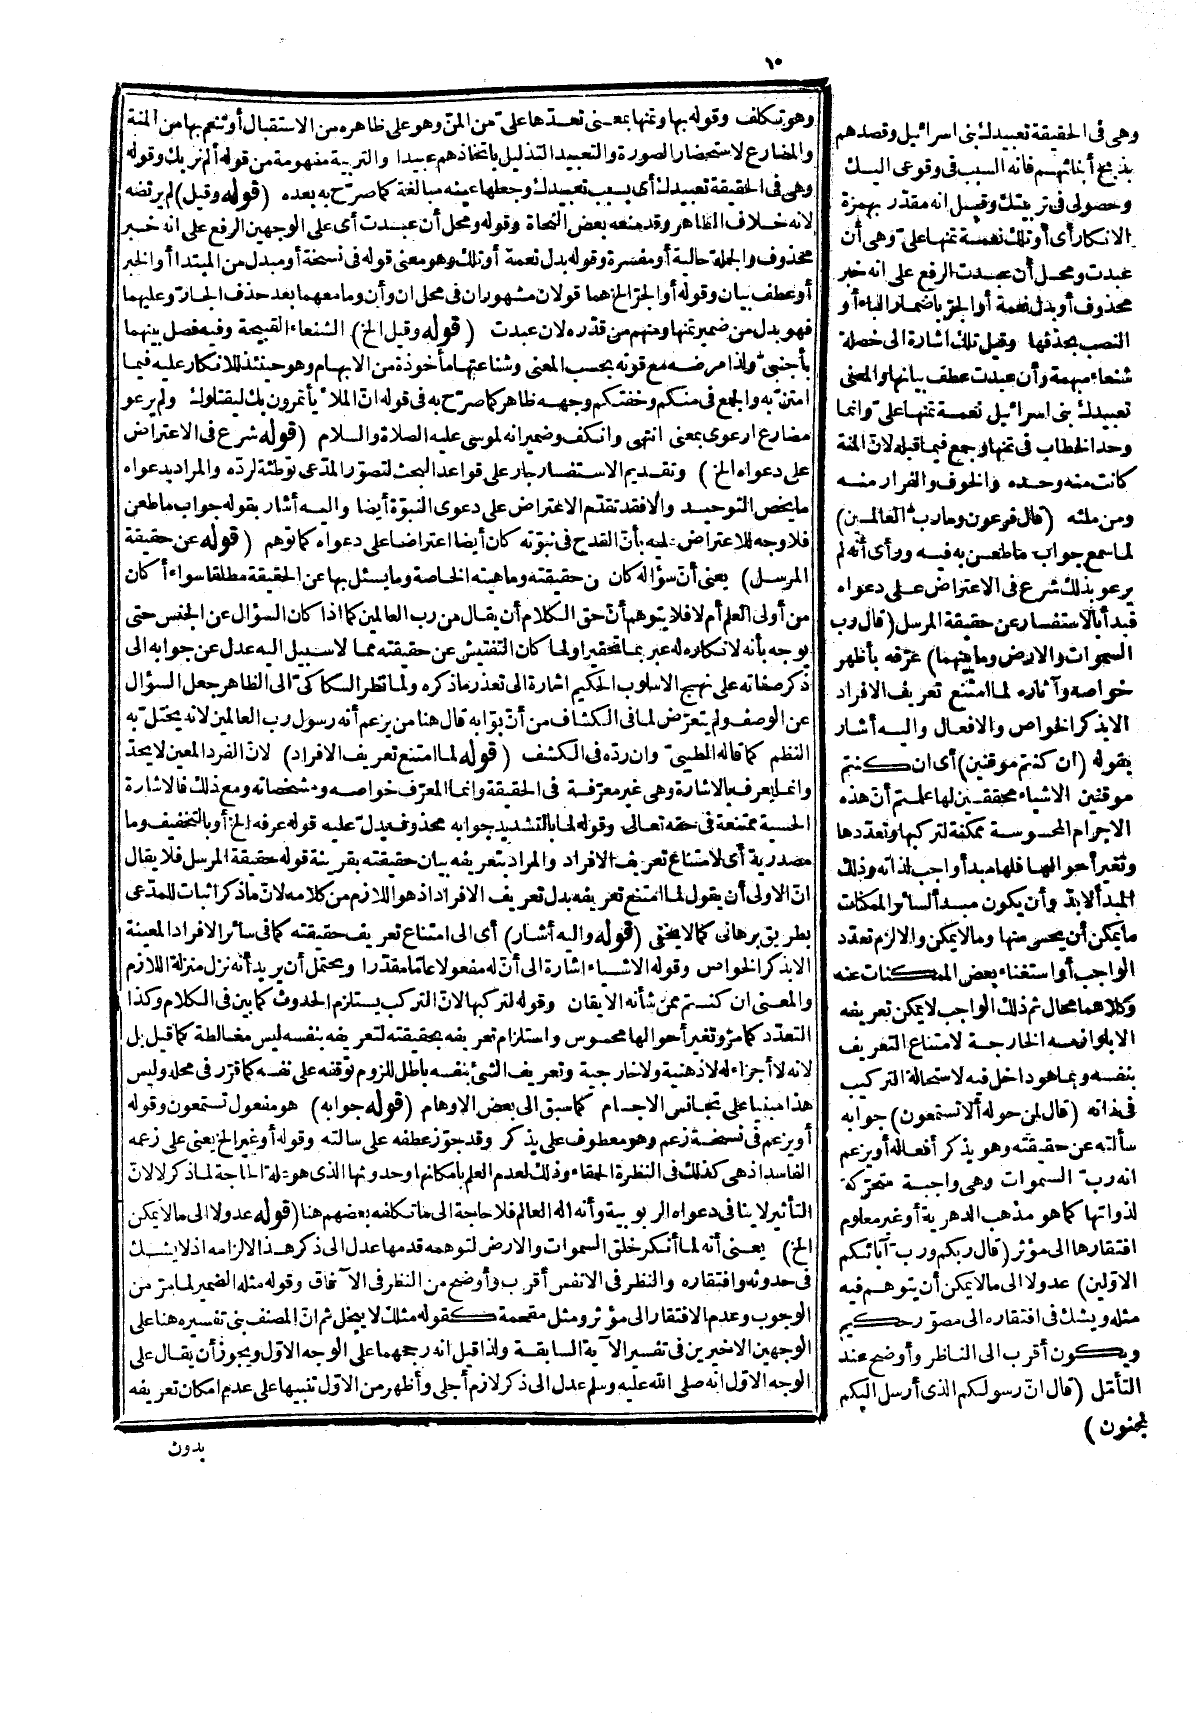 ١٠
وهى فى الحقيقة تعبيدك بنى اسرائيل وقصدهم
بذبح أبنائهم فانه السبب فى وقوعى اليك
وحصولى فى تربيتك وقيل انه مقدّر بهمزة
الانكار أى أو تلك نعمة تمنها علىّ وهى أن
عبدت ومحل أن عبدت الرفع على انه خبر
محذوف أو بدل نعمة أو الجرّ باضمار الباء أو
النصب بحذفها وقيل تلك اشارة الى خصلة
شنعاء مبهمة وأن عبدت عطف بيانها والمعنى
تعبيدك بنى اسرائيل نعمة تمنها علىّ وانما
وحد الخطاب فى تمنها وجمع فيما قبله لانّ المنة
كانت منه وحده والخوف والفرار منه
ومن ملئه (قال فرعون وما رب العالمين)
لما سمع جواب ما طعن به فيه ورأى أنه لم
يرعو بذلك شرع فى الاعتراض على دعواه
فبدأ بالاستفسار عن حقيقة المرسل (قال رب
السموات والارض وما بينهما) عرّفه بأظهر
خواصه وآثاره لما امتنع تعريف الافراد
الا بذكر الخواص والافعال واليه أشار
بقوله (ان كنتم موقنين) أى ان كنتم
موقنين الاشياء محققين لها علمتم أنّ هذه
الاجرام المحسوسة ممكنة لتركبها وتعدّدها
وتغير أحوالها فلها مبدأ واجب لذاته وذلك
المبدأ لابدّ وأن يكون مبدأ لسائر الممكنات
ما يمكن أن يحس منها وما لا يمكن والا لزم تعدّد
الواجب أو استغناء بعض الممكنات عنه
وكلاهما محال ثم ذلك الواجب لا يمكن تعريفه
الا بلوازمه الخارجية لامتناع التعريف
بنفسه وبما هو داخل فيه لاستحالة التركيب
فى ذاته (قال لمن حوله ألا تستمعون) جوابه
سألته عن حقيقته وهو يذكر أفعاله أو يزعم
انه ربّ السموات وهى واجبة متحرّكة
لذواتها كما هو مذهب الدهرية أو غير معلوم
افتقارها الى مؤثر (قال ربكم وربّ آبائكم
الاوّلين) عدولا الى ما لا يمكن أن يتوهم فيه
مثله ويشك فى افتقاره الى مصوّر حكيم
ويكون أقرب الى الناظر وأوضح عند
التأمّل (قال انّ رسولكم الذى أرسل اليكم
لمجنون)
وهو تكلف وقوله بها وتمنها بمعنى تعدّها علىّ من المنّ وهو على ظاهره من الاستقبال أو تنعم بها من المنة
والمضارع لاستحضار الصورة والتعبيد التذليل باتخاذهم عبيدا والتربية مفهومة من قوله ألم نربك وقوله
وهى فى الحقيقة تعبيدك أى بسبب تعبيدك وجعلها عينه مبالغة كما صرّح به بعده (قوله وقيل) لم يرتضه
لانه خلاف الظاهر وقد منعه بعض النحاة وقوله ومحل أن عبدت أى على الوجهين الرفع على انه خبر
محذوف والجملة حالية أو مفسرة وقوله بدل نعمة أو تلك وهو معنى قوله فى نسخة أو مبدل من المبتدا أو الخبر
أو عطف بيان وقوله أو الجرّ الخ هما قولان مشهوران فى محل ان وأن وما معهما بعد حذف الجارّ وعليهما
فهو بدل من ضمير تمنها ومنهم من قدّره لان عبدت (قوله وقيل الخ) الشنعاء القبيحة وفيه فصل بينهما
بأجنبىّ ولذا مرضه مع قوته بحسب المعنى وشناعتها مأخوذة من الابهام وهو حينئذ للانكار عليه فيما
امتنّ به والجمع فى منكم وخفتكم وجهه ظاهر كما صرّح به فى قوله انّ الملأ يأتمرون بك ليقتلوك ولم يرعو
مضارع ارعوى بمعنى انتهى وانكف وضميرانه لموسى عليه الصلاة والسلام (قوله شرع فى الاعتراض
على دعواه الخ) وتقديم الاستفسار جار على قواعد البحث لتصوّر المدّعى توطئة لردّه والمراد بدعواه
ما يخص التوحيد والا فقد تقدّم الاعتراض على دعوى النبوّة أيضا واليه أشار بقوله جواب ما طعن
فلا وجه للاعتراض عليه بأنّ القدح فى نبوّته كان أيضا اعتراضا على دعواه كما توهم (قوله عن حقيقة
المرسل) يعنى أنّ سؤاله كان عن حقيقته وماهيته الخاصة وما يسئل بها عن الحقيقة مطلقا سواء أكان
من أولى العلم أم لا فلا يتوهم أنّ حق الكلام أن يقال من رب العالمين كما اذا كان السؤال عن الجنس حتى
يوجه بأنه لانكاره له عبر بما تحقيرا ولما كان التفتيش عن حقيقته مما لا سبيل اليه عدل عن جوابه الى
ذكر صفاته على نهج الاسلوب الحكيم اشارة الى تعذر ما ذكره ولما نظر السكاكىّ الى الظاهر جعل السؤال
عن الوصف ولم يتعرّض لما فى الكشاف من أنّ بوّابه قال هنا من يزعم أنه رسول رب العالمين لانه يختلّ به
النظم كما قاله الطيبىّ وان ردّه فى الكشف (قوله لما امتنع تعريف الافراد) لانّ الفرد المعين لا يحدّ
وانما يعرف بالاشارة وهى غير معرّفة فى الحقيقة وانما المعرّف خواصه ومشخصاته ومع ذلك فالاشارة
الحسية ممتنعة فى حقه تعالى وقوله لما بالتشديد جوابه محذوف يدلّ عليه قوله عرفه الخ أو بالتخفيف وما
مصدرية أى لامتناع تعريف الافراد والمراد بتعريفه بيان حقيقته بقرينة قوله حقيقة المرسل فلا يقال
انّ الاولى أن يقول لما امتنع تعريفه بدل تعريف الافراد اذ هو اللازم من كلامه لانّ ما ذكر اثبات للمدّعى
بطريق برهانى كما لا يخفى (قوله واليه أشار) أى الى امتناع تعريف حقيقته كما فى سائر الافراد المعينة
الا بذكر الخواص وقوله الاشياء اشارة الى أنّ له مفعولا عامّا مقدّرا ويحتمل أن يريد أنه نزل منزلة اللازم
والمعنى ان كنتم ممن شأنه الايقان وقوله لتركبها لانّ التركب يستلزم الحدوث كما بين فى الكلام وكذا
التعدّد كما مرّ وتغير أحوالها محسوس واستلزام تعريفه بحقيقته لتعريفه بنفسه ليس مغالطة كما قيل بل
لانه لا أجزاء له لا ذهنية ولا خارجية وتعريف الشئ بنفسه باطل للزوم توقفه على نفسه كما قرّر فى محله وليس
هذا مبنيا على تجانس الاجسام كما سبق الى بعض الاوهام (قوله جوابه) هو مفعول تستمعون وقوله
أو يزعم فى نسخة زعم وهو معطوف على يذكر وقد جوّز عطفه على سألته وقوله أو غير الخ يعنى على زعمه
الفاسد اذ هى كذلك فى النظرة الحمقاء وذلك لعدم العلم بامكانها وحدوثها الذى هو علة الحاجة لما ذكر لا لانّ
التأثير لا ينافى دعواه الربوبية وأنه اله العالم فلا حاجة الى ما تكلفه بعضهم هنا (قوله عدولا الى ما لا يمكن
الخ) يعنى أنه لما أنكر خلق السموات والارض لتوهمه قدمها عدل الى ذكر هذا الالزامه اذ لا يشك
فى حدوثه وافتقاره والنظر فى الانفس أقرب وأوضح من النظر فى الآفاق وقوله مثله الضمير لما مرّ من
الوجوب وعدم الافتقار الى مؤثر ومثل مقحمة كقوله مثلك لا يبخل ثم انّ المصنف بنى تفسيره هنا على
الوجهين الاخيرين فى تفسير الآية السابقة ولذا قيل انه رجحهما على الوجه الاوّل ويجوز أن يقال على
الوجه الاوّل انه صلى الله عليه وسلم عدل الى ذكر لازم أجلى وأظهر من الاوّل تنبيها على عدم امكان تعريفه
بدون